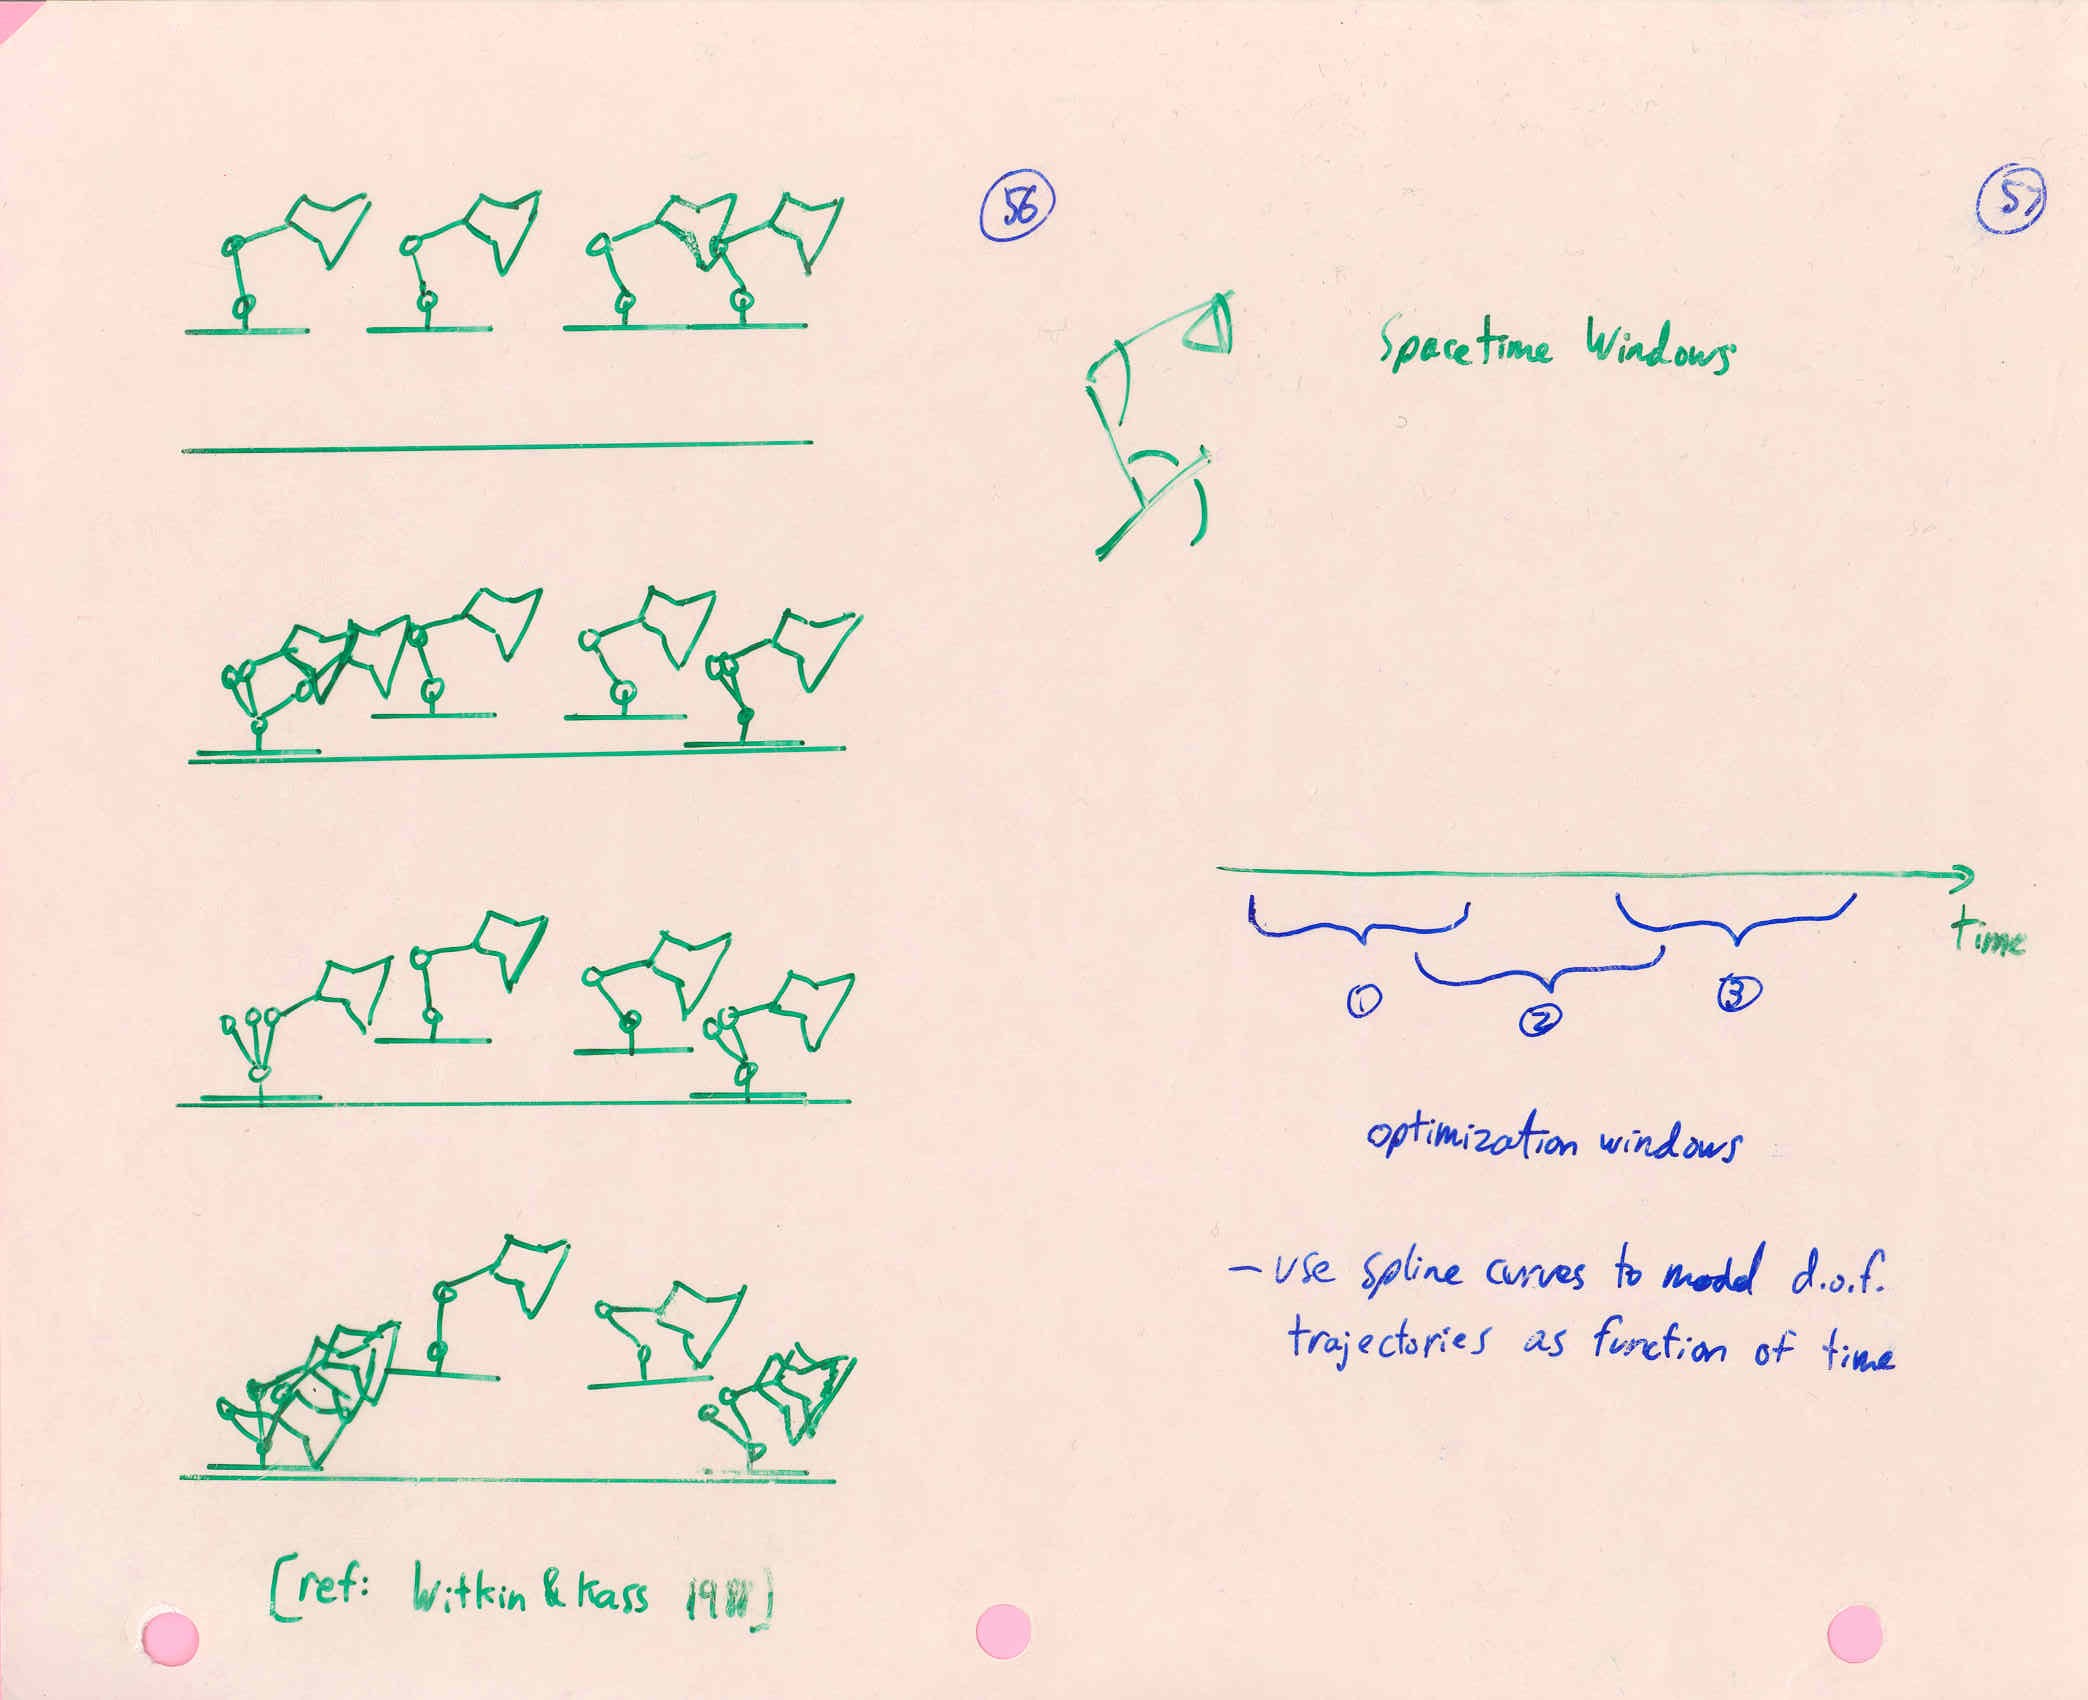 56
[ref: Witkin & Kass 1988]
57
Spacetime Windows
time
① ② ③
optimization windows
– use spline curves to model d.o.f.
trajectories as function of time